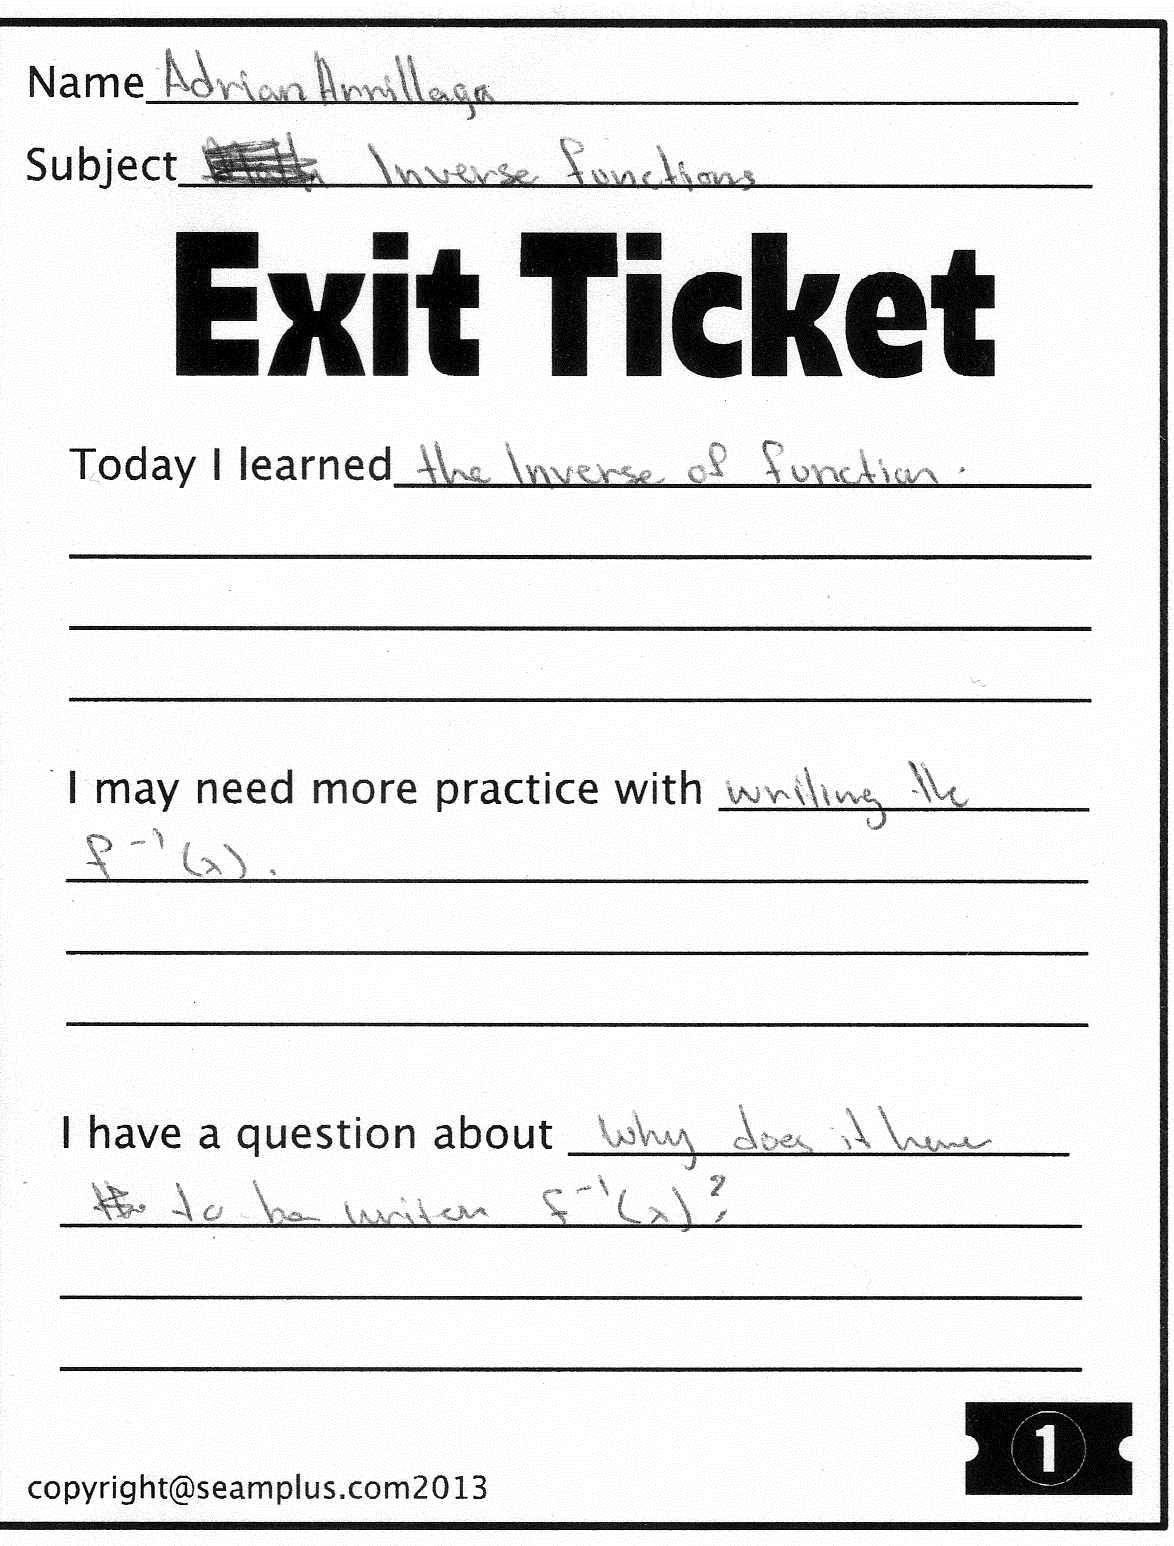 Name Adrian Arrillaga
Subject Math Inverse functions
Exit Ticket
Today I learned the Inverse of function.
I may need more practice with writing the
f⁻¹(x).
I have a question about Why does it have
to be writen f⁻¹(x)?
1
copyright@seamplus.com2013